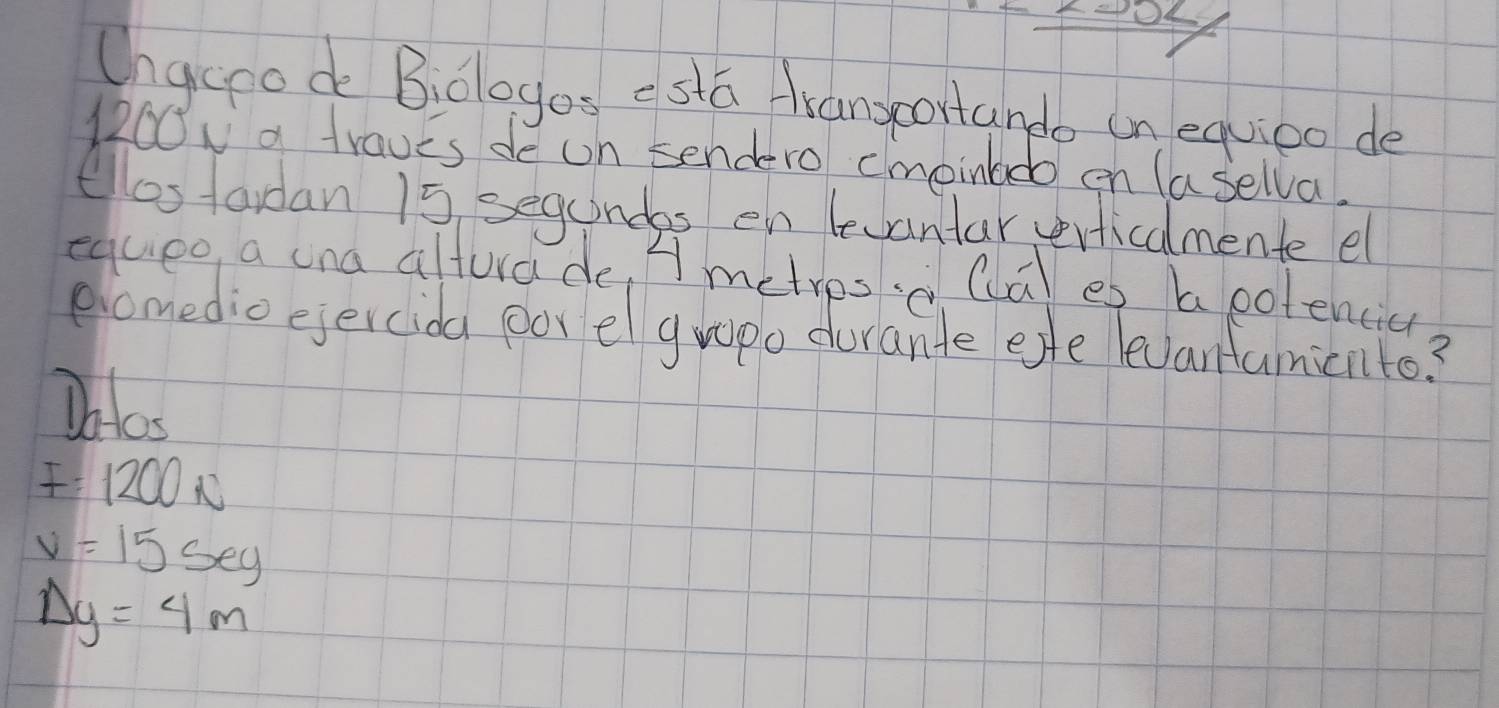 Un grupo de Biólogos está transportando un equipo de
1200N a través de un sendero empinado en la selva.
Ellos tardan 15 segundos en levantar verticalmente el
equipo, a una altura de, 4 metros. ¿Cuál es la potencia
promedio ejercida por el grupo durante este levantamiento?
Datos
F= 1200N
v = 15 seg
Δy = 4 m